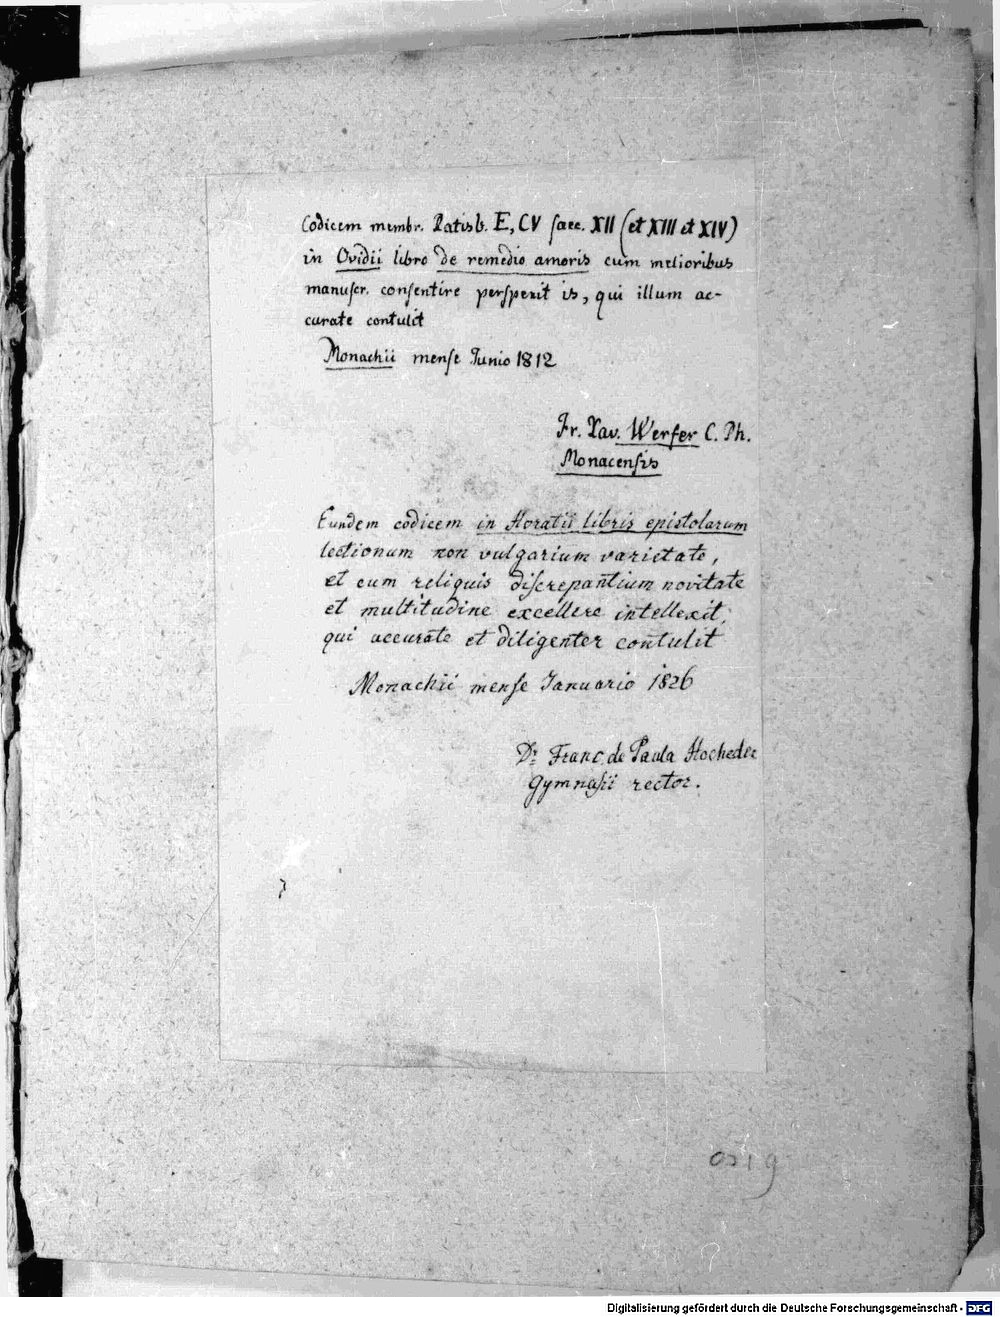 Codicem membr. Ratisb. E, CV saec. XII (et XIII et XIV)
in Ovidii libro de remedio amoris cum melioribus
manuscr. consentire perspexit is, qui illum ac-
curate contulit
Monachii mense Junio 1812
Fr. Xav. Werfer C. Ph.
Monacensis
Eundem codicem in Horatii libris epistolarum
lectionum non vulgarium varietate,
et cum reliquis discrepantium novitate
et multitudine excellere intellexit,
qui accurate et diligenter contulit
Monachii mense Januario 1826
Dr. Franc. de Paula Hocheder
Gymnasii rector.
Digitalisierung gefördert durch die Deutsche Forschungsgemeinschaft - DFG